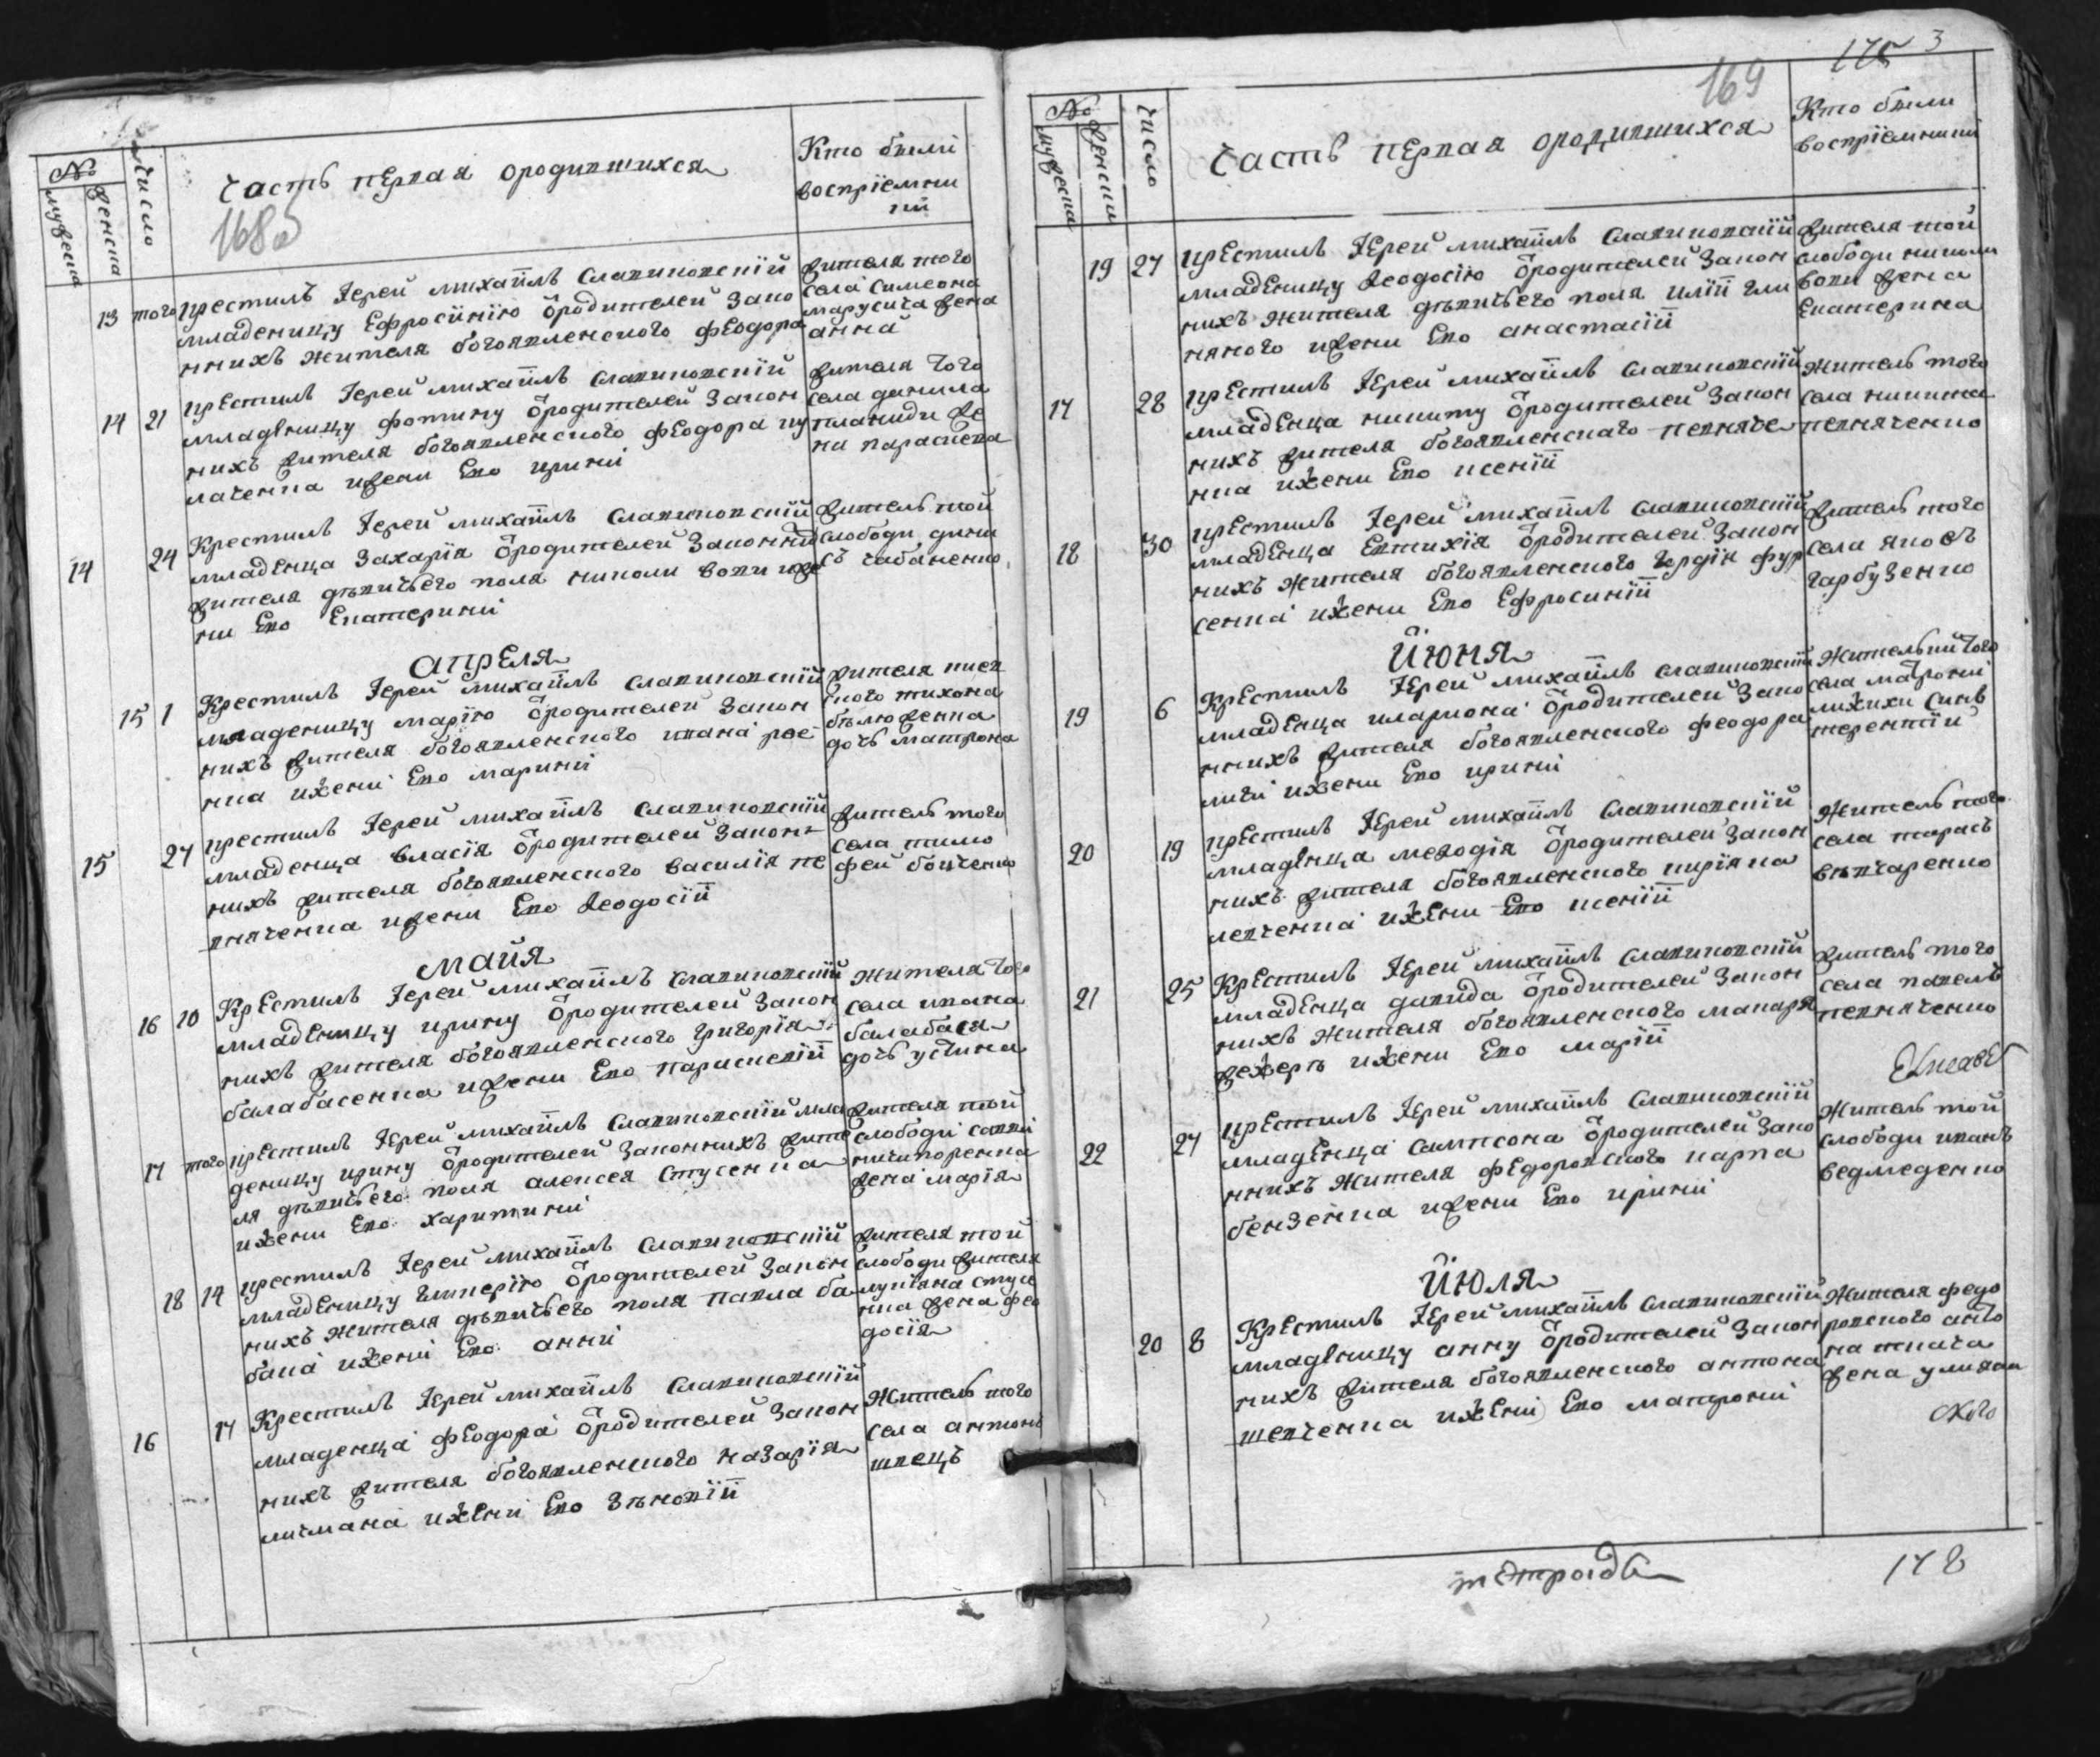 №
мужеска
женска
число
Часть первая ородившихся
168об
Кто были
воспріемни
ки
13 того
крестилъ Іерей михаилъ Славиновскій
младеницу Ефросинію ѿродителей Зако
ннихъ жителя богоявленского феодора
жителя того
села Симеона
марусича жена
анна
14 21
крестилъ Іерей михаилъ Славиновскій
младеницу фотину ѿродителей Закон
нихъ жителя богоявленского феодора ку
лаченка ижени Его ирини
жителя того
села данила
плакиди же
на параскева
14 24
Крестилъ Іерей михаилъ Славиновскій
младенца Захарія ѿродителей Законнихъ
жителя дѣвичьего поля николи вови иже
ни Его Екатерини
житель той
слободи дени
съ чабаненко
апреля
15 1
Крестилъ Іерей михаилъ Славиновскій
младеницу марію ѿродителей Закон
нихъ жителя богоявленского ивана рое
нка ижени Его марини
жителя киев
ского тихона
бѣложенка
дочь матрона
15 27
крестилъ Іерей михаилъ Славиновскій
младенца власія ѿродителей Закон
нихъ жителя богоявленского василія пе
вняченка ижени Его Ѳеодосіи
житель того
села тимо
фей бойченко
майя
16 10
Крестилъ Іерей михаилъ Славиновскій
младеницу ирину ѿродителей Закон
нихъ жителя богоявленского григорія
балабасенка ижени Его параскевіи
жителя того
села ивана
балабася
дочь устина
17 того
крестилъ Іерей михаилъ Славиновскій мла
деницу ирину ѿродителей Законнихъ жите
ля дѣвичьего поля алексея Стусенка
ижени Его харитини
жителя той
слободи савви
ничипоренка
жена марія
18 14
крестилъ Іерей михаилъ Славиновскій
младеницу гликерію ѿродителей Закон
нихъ жителя дѣвичьего поля павла ба
бака ижени Его анни
жителя той
слободи жителя
лукіана стусе
нка жена фео
досія
16 17
Крестилъ Іерей михаилъ Славиновскій
младенца феодора ѿродителей Закон
нихъ жителя богоявленского назарія
личмана ижени Его Зѣновіи
житель того
села антонъ
швецъ
169
175 3
№
мужеска
женски
число
Часть первая ородившихся
Кто были
воспріемники
19 27
крестилъ Іерей михаилъ Славиновскій
младеницу Ѳеодосію ѿродителей Закон
нихъ жителя дѣвичьего поля иліи гли
няного ижени Его анастасіи
жителя той
слободи николи
вови жена
Екатерина
17 28
крестилъ Іерей михаилъ Славиновскій
младенца никиту ѿродителей Закон
нихъ жителя богоявленскаго певняче
нка ижени Его ксеніи
житель того
села никита
певняченко
18 30
крестилъ Іерей михаилъ Славиновскій
младенца Евтихія ѿродителей Закон
нихъ жителя богоявленского гордія фур
сенка ижени Его Ефросиніи
житель того
села яковъ
гарбузенко
Июня
19 6
Крестилъ Іерей михаилъ Славиновскій
младенца илариона ѿродителей Зако
ннихъ жителя богоявленского феодора
личи ижени Его ирини
жительки того
села матрони
личихи синъ
терентій
20 19
крестилъ Іерей михаилъ Славиновскій
младенца меѳодія ѿродителей Закон
нихъ жителя богоявленского киріяка
левченка ижени Его ксеніи
житель того
села тарасъ
вѣвчаренко
21 25
Крестилъ Іерей михаилъ Славиновскій
младенца давида ѿродителей Закон
нихъ жителя богоявленского макаря
жежеръ ижени Его маріи
житель того
села павелъ
певняченко
22 27
крестилъ Іерей михаилъ Славиновскій
младенца сампсона ѿродителей Зако
ннихъ жителя федоровского карпа
бензенка ижени Его ирини
житель той
слободи иванъ
ведмеденко
Июля
20 8
Крестилъ Іерей михаилъ Славиновскій
младеницу анну ѿродителей Закон
нихъ жителя богоявленского антона
шевченка ижени Его матрони
жителя федо
ровского анто
на ткача
жена улияна
ского
178